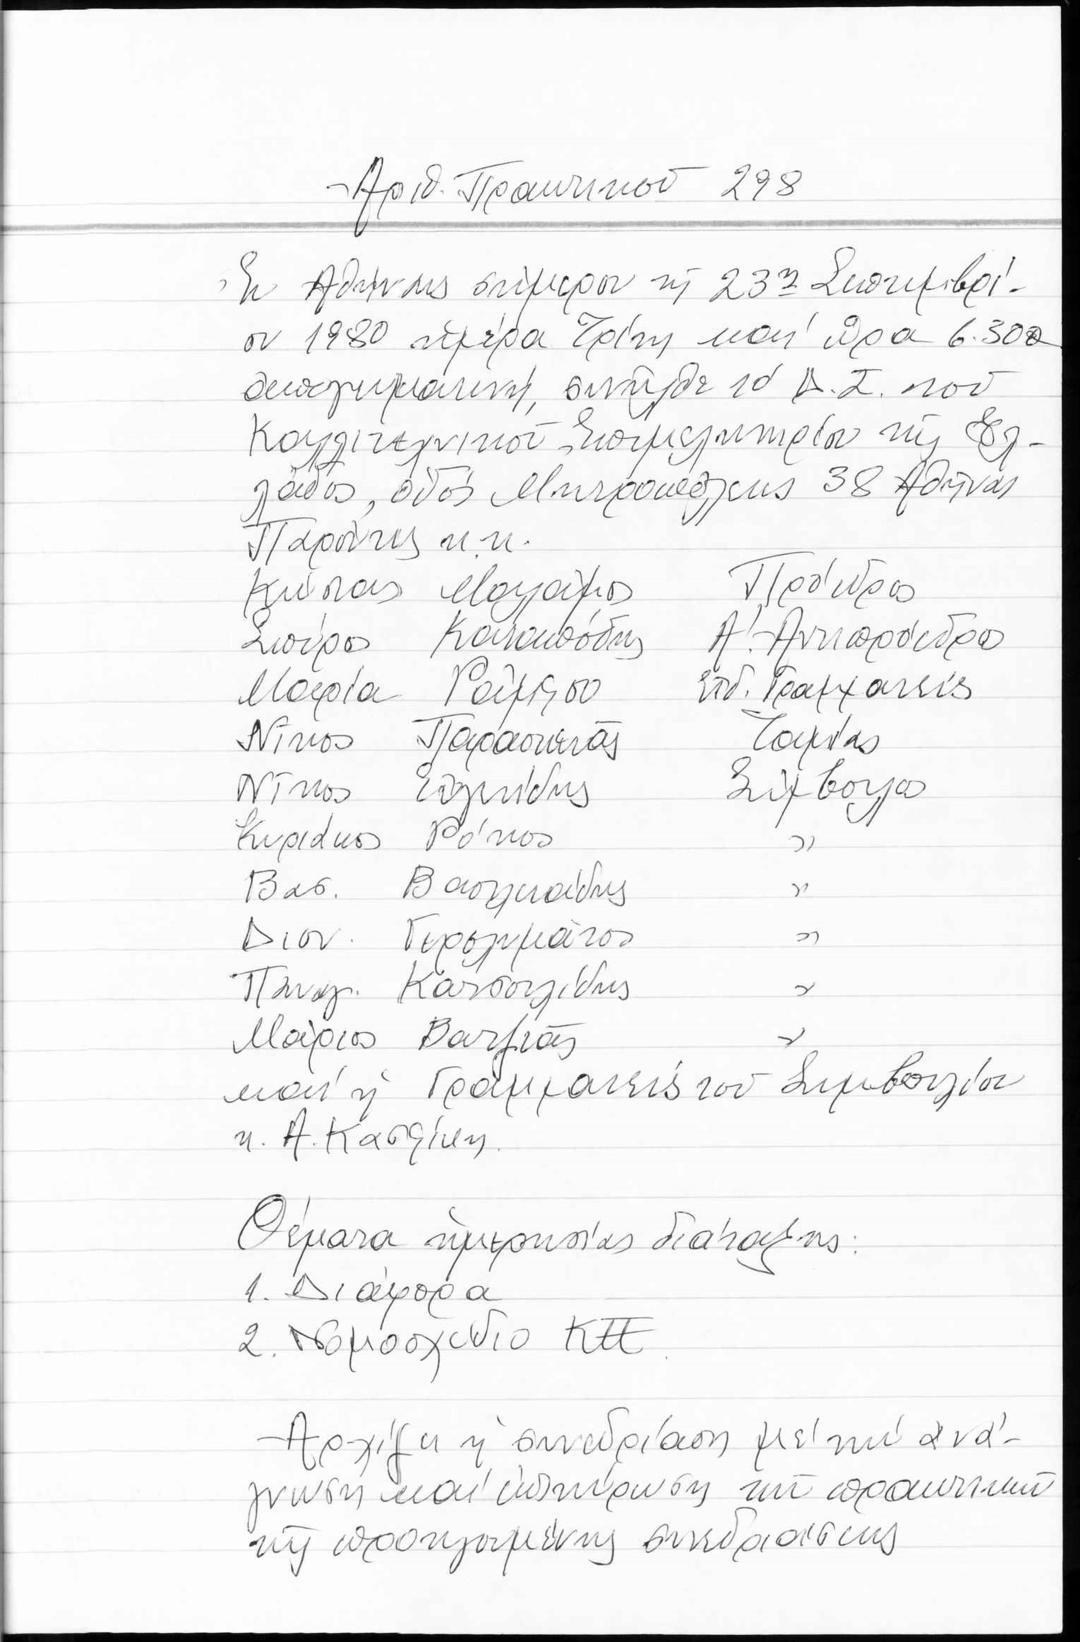 Ἀριθ. Πρακτικοῦ 298
Ἐν Ἀθήναις σήμερον τῇ 23η Σεπτεμβρί-
ου 1980 ἡμέρα Τρίτη καί ὥρα 6.30
ἀπογευματινή, συνῆλθε τό Δ.Σ. τοῦ
Καλλιτεχνικοῦ Ἐπιμελητηρίου τῆς Ἑλ-
λάδος, ὁδός Μητροπόλεως 38 Ἀθήνας
Παρόντες κ.κ.
Κώστας Μαλάμος Πρόεδρος
Σπύρος Κατապόδης Α' Ἀντιπρόεδρος
Μαρία Γραμματεύς
Νῖκος Παρασκευᾶς Ταμίας
Νῖκος Σύμβουλος
Κυριάκος Ρόκος "
Βασ. Βασιλειάδης "
Διον. Γερολυμάτος "
Παναγ. Κατσουλίδης "
Μάριος Βατζιᾶς "
καί ἡ Γραμματεύς τοῦ Συμβουλίου
κ. Α.
Θέματα ἡμερησίας διατάξης:
1. Διάφορα
2. Νομοσχέδιο
Ἀρχίζει ἡ συνεδρίαση μέ τήν ἀνά-
γνωση καί ἐπικύρωση τῶν πρακτικῶν
τῆς προηγουμένης συνεδριάσεως